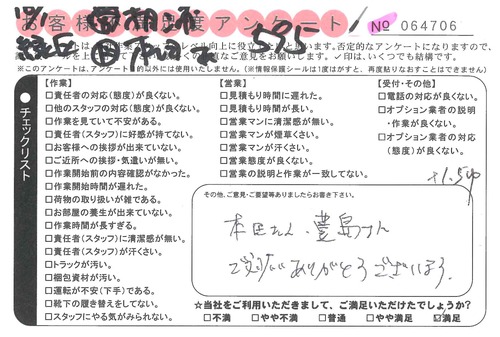 お客様満足度アンケート
№ 064706
本アンケートは、サービスレベル向上に役立たせたいと思います。否定的なアンケートになりますので、
ご意見をお願いします。✓印は、いくつでも結構です。
※このアンケートは、アンケート目的以外には使用いたしません。（※情報保護シールは1度はがすと、再度貼りなおすことはできません）
● チェックリスト
【作業】
□責任者の対応（態度）が良くない。
□他のスタッフの対応（態度）が良くない。
□作業を見ていて不安がある。
□責任者（スタッフ）に好感が持てない。
□お客様への挨拶が出来ていない。
□ご近所への挨拶・気遣いが無い。
□作業開始前の内容確認がなかった。
□作業開始時間が遅れた。
□荷物の取り扱いが雑である。
□お部屋の養生が出来ていない。
□作業時間が長すぎる。
□責任者（スタッフ）に清潔感が無い。
□責任者（スタッフ）が汗くさい。
□トラックが汚い。
□梱包資材が汚い。
□運転が不安（下手）である。
□靴下の履き替えをしてない。
□スタッフにやる気がみられない。
【営業】
□見積もり時間に遅れた。
□見積もり時間が長い。
□営業マンに清潔感が無い。
□営業マンが煙草くさい。
□営業マンが汗くさい。
□営業態度が良くない。
□営業の説明と作業が一致してない。
【受付・その他】
□電話の対応が良くない。
□オプション業者の説明
・作業が良くない。
□オプション業者の対応
（態度）が良くない。
その他、ご意見・ご要望等ありましたらお書き下さい。
本田さん、豊島さん
ご対応ありがとうございます。
☆当社をご利用いただきまして、ご満足いただけたでしょうか？
□不満 □やや不満 □普通 □やや満足 ☑満足